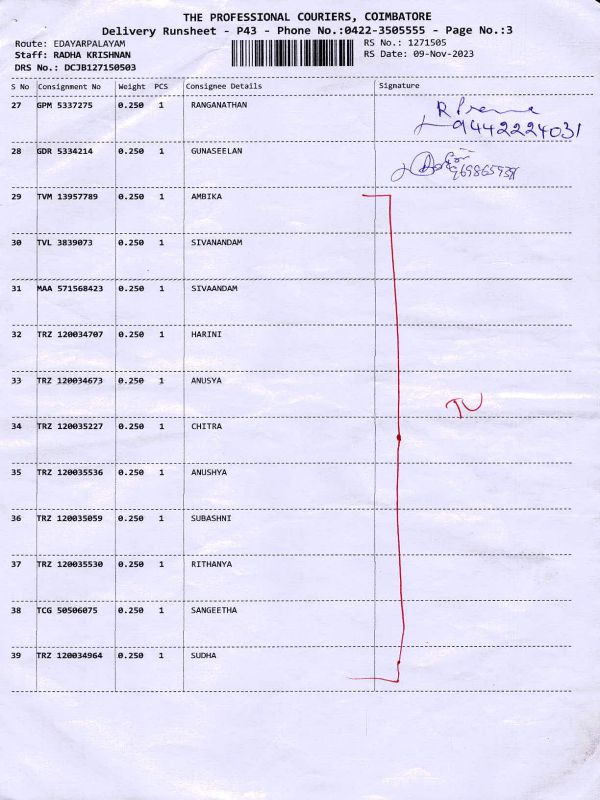 THE PROFESSIONAL COURIERS, COIMBATORE
Delivery Runsheet - P43 - Phone No.:0422-3505555 - Page No.:3
Route: EDAYARPALAYAM RS No.: 1271505
Staff: RADHA KRISHNAN RS Date: 09-Nov-2023
DRS No.: DCJB127150503
S No Consignment No Weight PCS Consignee Details Signature
27 GPM 5337275 0.250 1 RANGANATHAN R Prema
9442224031
28 GDR 5334214 0.250 1 GUNASEELAN
29 TVM 13957789 0.250 1 AMBIKA
30 TVL 3839073 0.250 1 SIVANANDAM
31 MAA 571568423 0.250 1 SIVAANDAM
32 TRZ 120034707 0.250 1 HARINI
33 TRZ 120034673 0.250 1 ANUSYA
34 TRZ 120035227 0.250 1 CHITRA
35 TRZ 120035536 0.250 1 ANUSHYA
36 TRZ 120035059 0.250 1 SUBASHNI
37 TRZ 120035530 0.250 1 RITHANYA
38 TCG 50506075 0.250 1 SANGEETHA
39 TRZ 120034964 0.250 1 SUDHA